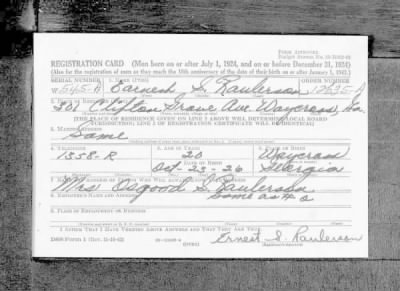 FORM APPROVED
REGISTRATION CARD (Men born on or after July 1, 1924, and on or before December 31, 1924)
(Also for the registration of men as they reach the 18th anniversary of the date of their birth on or after January 1, 1943.)
SERIAL NUMBER 1. NAME (Print) ORDER NUMBER
W 545-A Earnest S. Raulerson 12535-A
301 Clifton Grove Ave Waycross, Ga
[THE PLACE OF RESIDENCE GIVEN ON LINE 2 ABOVE WILL DETERMINE LOCAL BOARD
JURISDICTION; LINE 2 OF REGISTRATION CERTIFICATE WILL BE IDENTICAL]
3. MAILING ADDRESS
Same
4. TELEPHONE 5. AGE IN YEARS 6. PLACE OF BIRTH
1358-R 20 Waycross
DATE OF BIRTH
Oct-23-26 Georgia
Mrs Osgood S. Raulerson
8. EMPLOYER'S NAME AND ADDRESS
same as
9. PLACE OF EMPLOYMENT OR BUSINESS
I AFFIRM THAT I HAVE VERIFIED ABOVE ANSWERS AND THAT THEY ARE TRUE.
DSS Form 1 (Rev. 11-16-42) (OVER) Ernest S. Raulerson